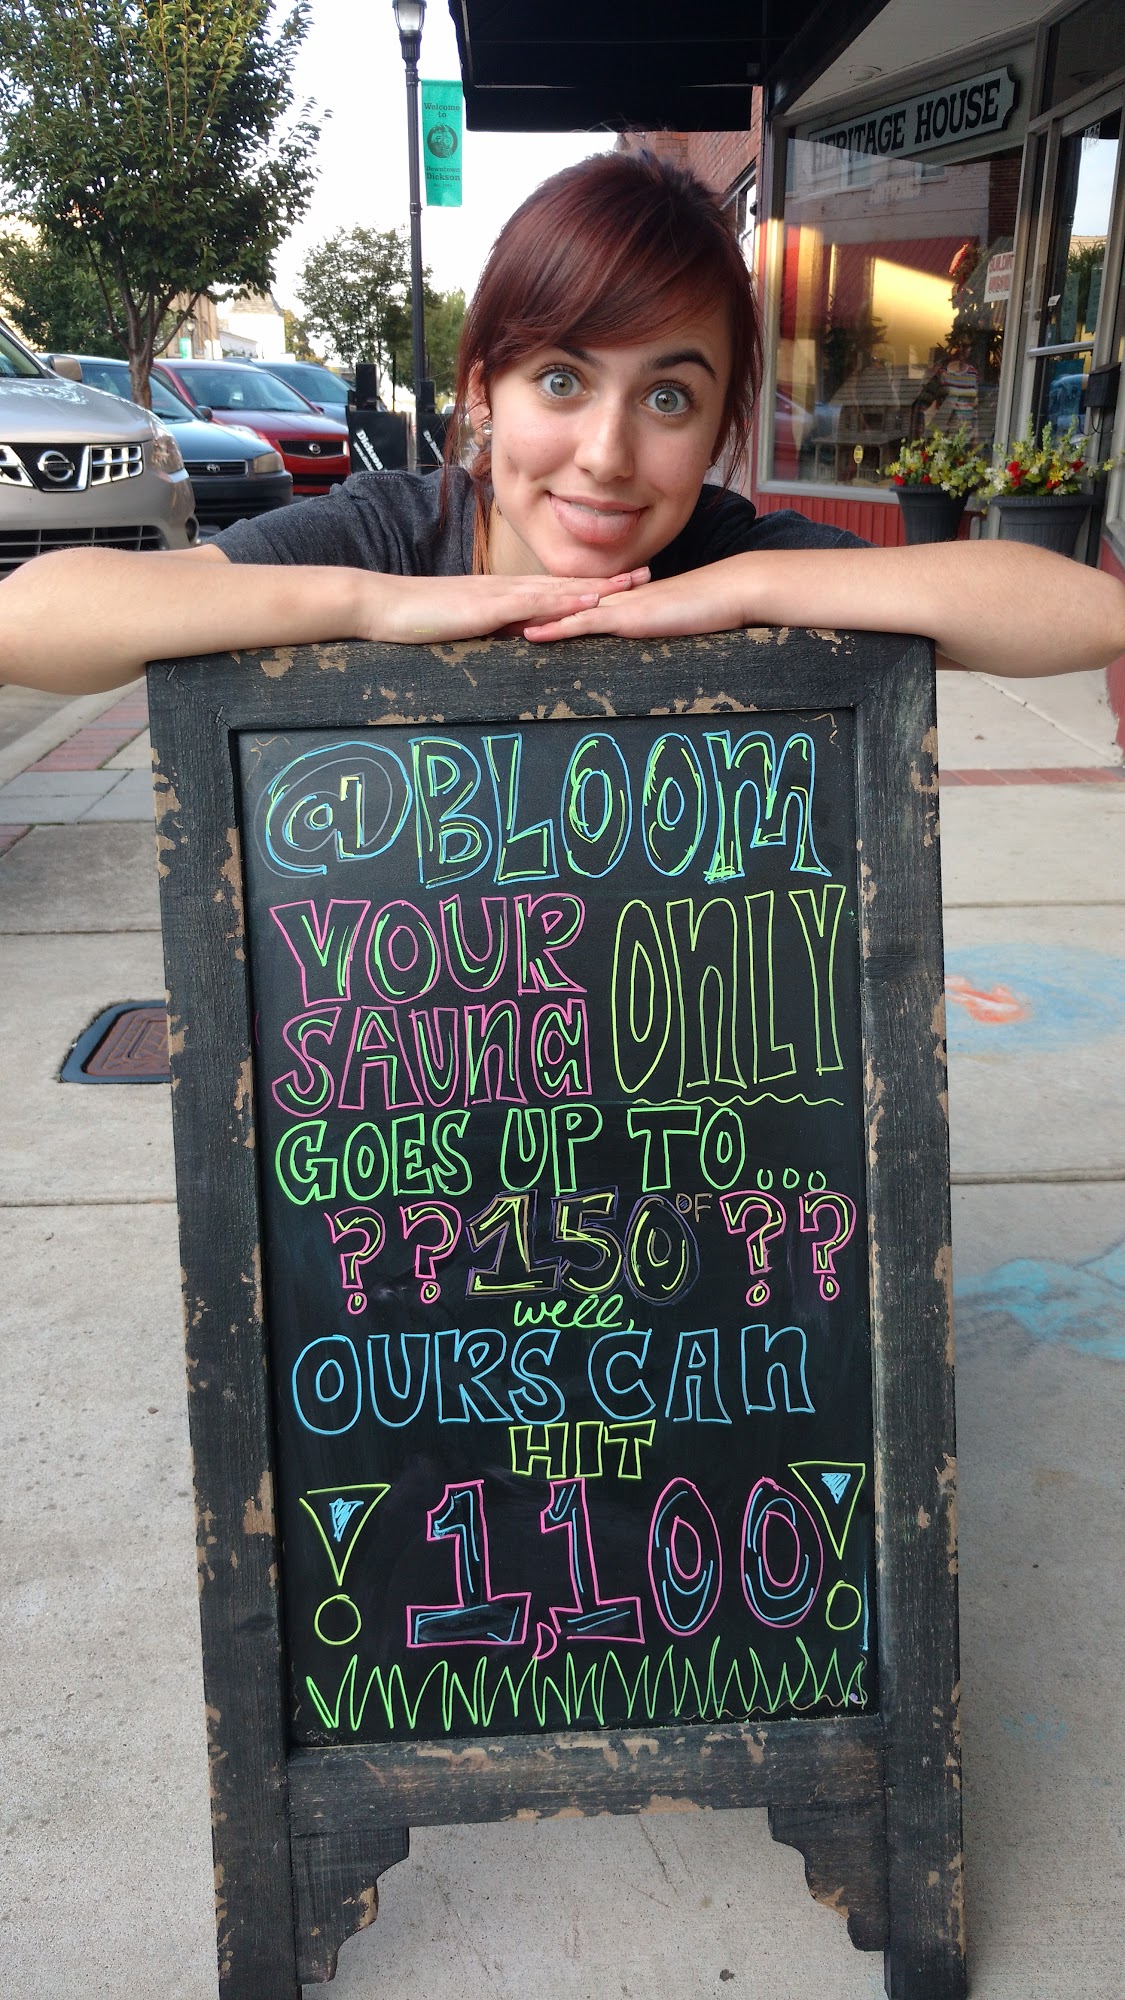 Welcome
to
Downtown
Dickson
HERITAGE HOUSE
Dickson
@BLOOM
YOUR ONLY
SAUNA
GOES UP TO...
??150°F??
well,
OURS CAN
HIT
!1,100!